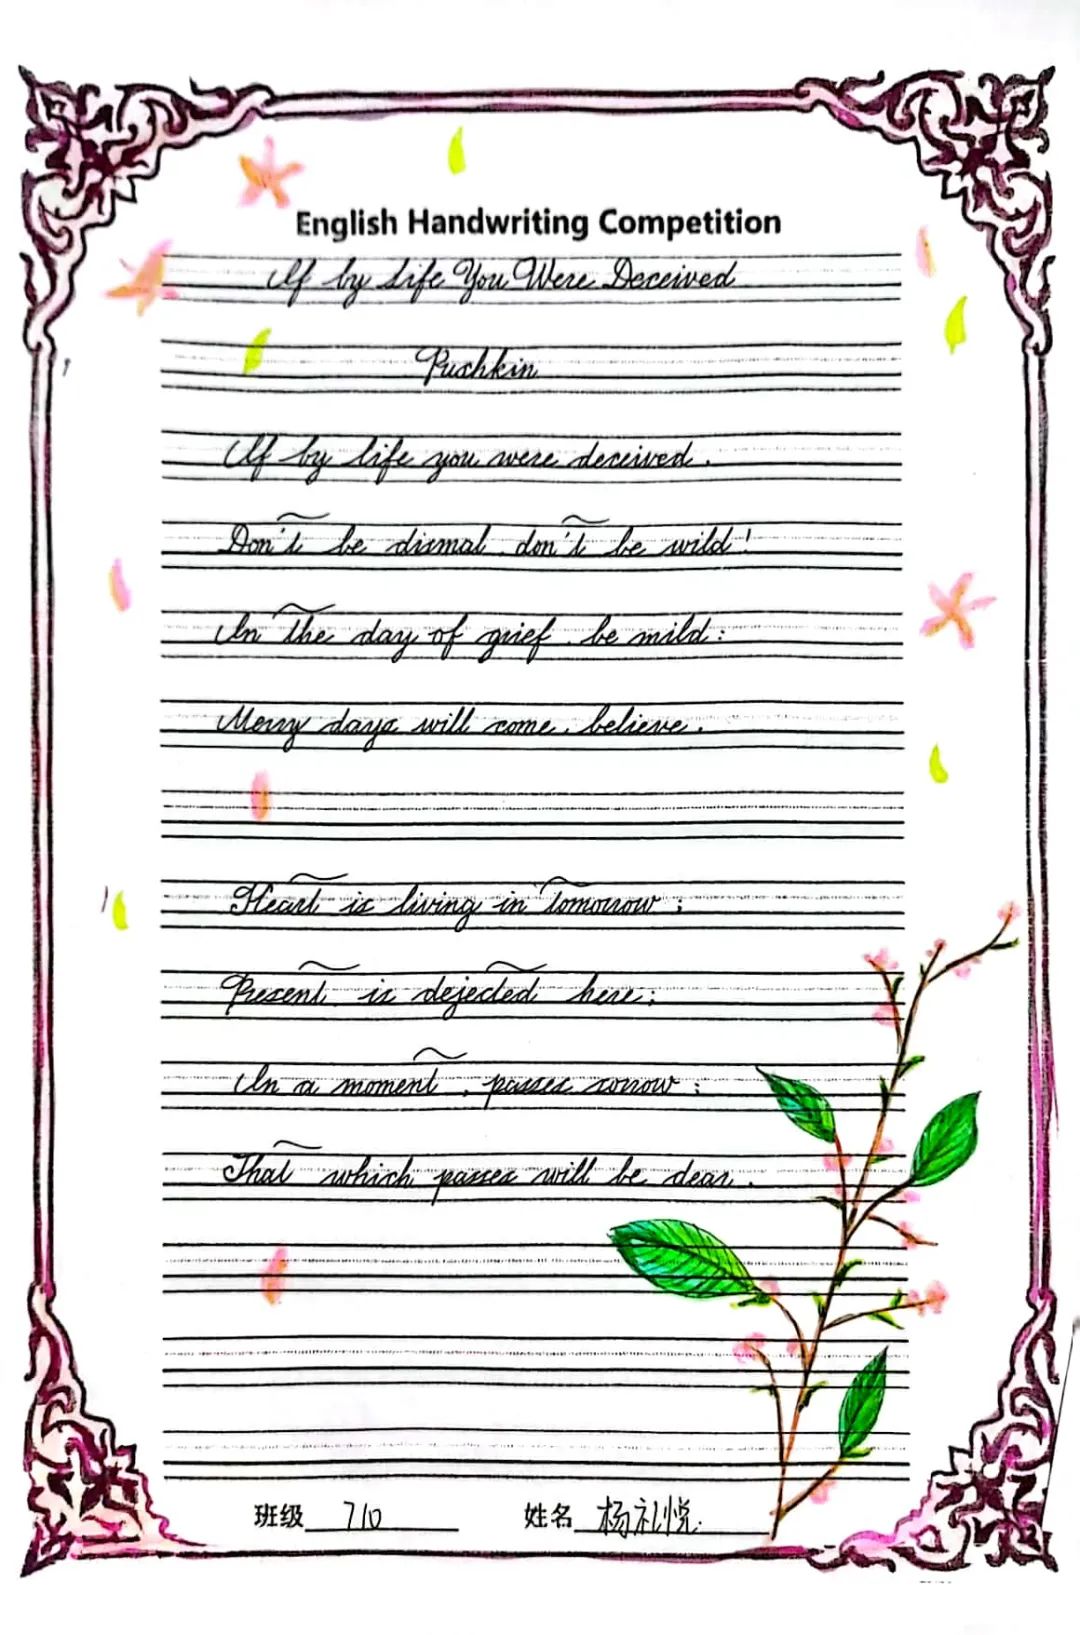 English Handwriting Competition
If by life You Were Deceived
Pushkin
If by life you were deceived.
Don't be dismal don't be wild!
In the day of grief. be mild:
Merry days will come. believe.
Heart is living in tomorrow;
Present is dejected here;
In a moment, passes sorrow;
That which passes will be dear.
班级 710 姓名 杨礼悦.